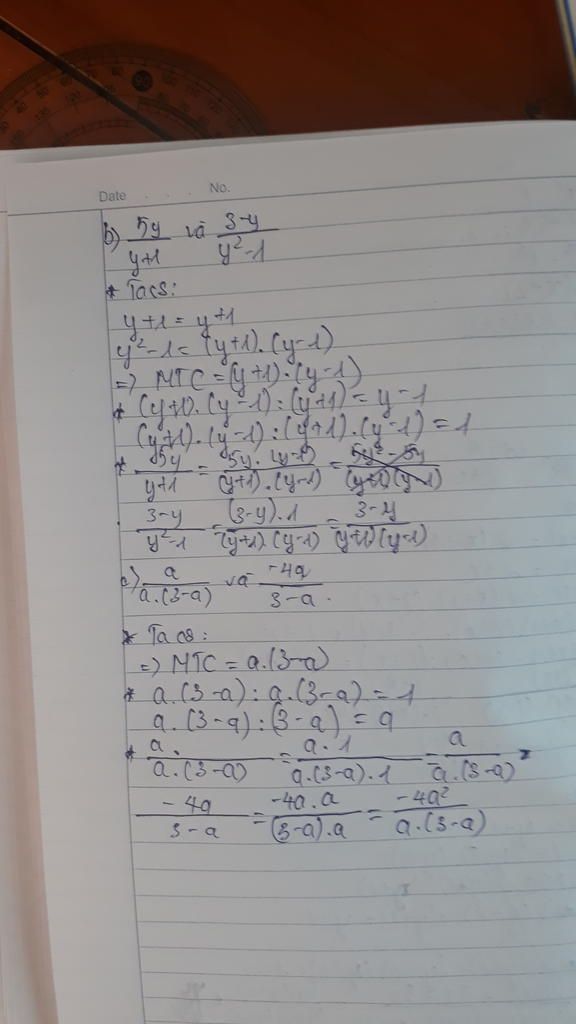 Date . . . No.
b) 5y/y+1 và 3-y/y²-1
* Ta có:
y+1 = y+1
y²-1 = (y+1).(y-1)
=> MTC = (y+1).(y-1)
* (y+1).(y-1):(y+1) = y-1
(y+1).(y-1):(y+1).(y-1) = 1
* 5y/y+1 = 5y.(y-1)/(y+1).(y-1) = 5y²-5y/(y+1)(y-1)
3-y/y²-1 = (3-y).1/(y+1).(y-1) = 3-y/(y+1)(y-1)
c) a/a.(3-a) và -4a/3-a.
* Ta có:
=> MTC = a.(3-a)
* a.(3-a):a.(3-a) = 1
a.(3-a):(3-a) = a
* a./a.(3-a) = a.1/a.(3-a).1 = a/a.(3-a)
-4a/3-a = -4a.a/(3-a).a = -4a²/a.(3-a)